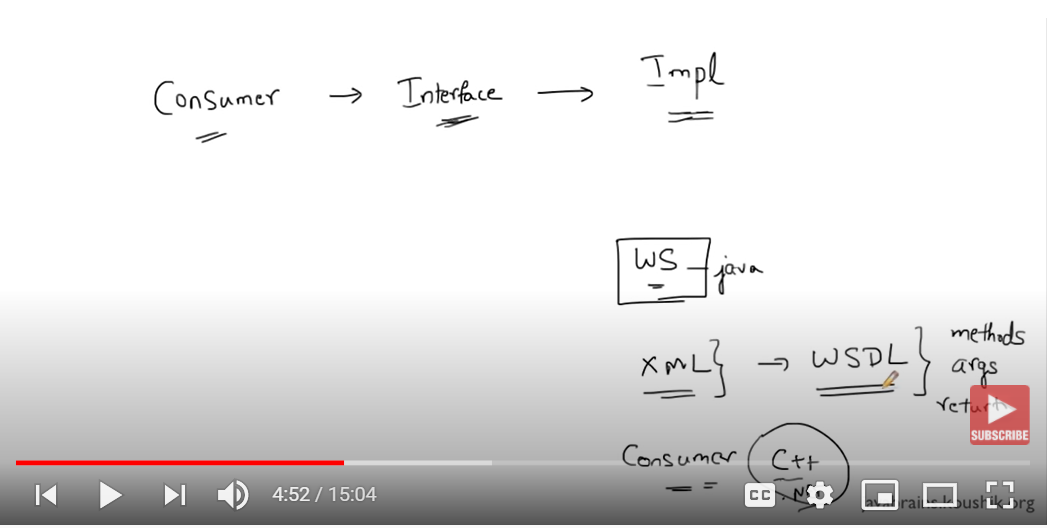 Consumer → Interface → Impl
WS - java
XML } → WSDL } methods
args
return
SUBSCRIBE
Consumer C++
4:52 / 15:04
CC
javabrains.koushik.org